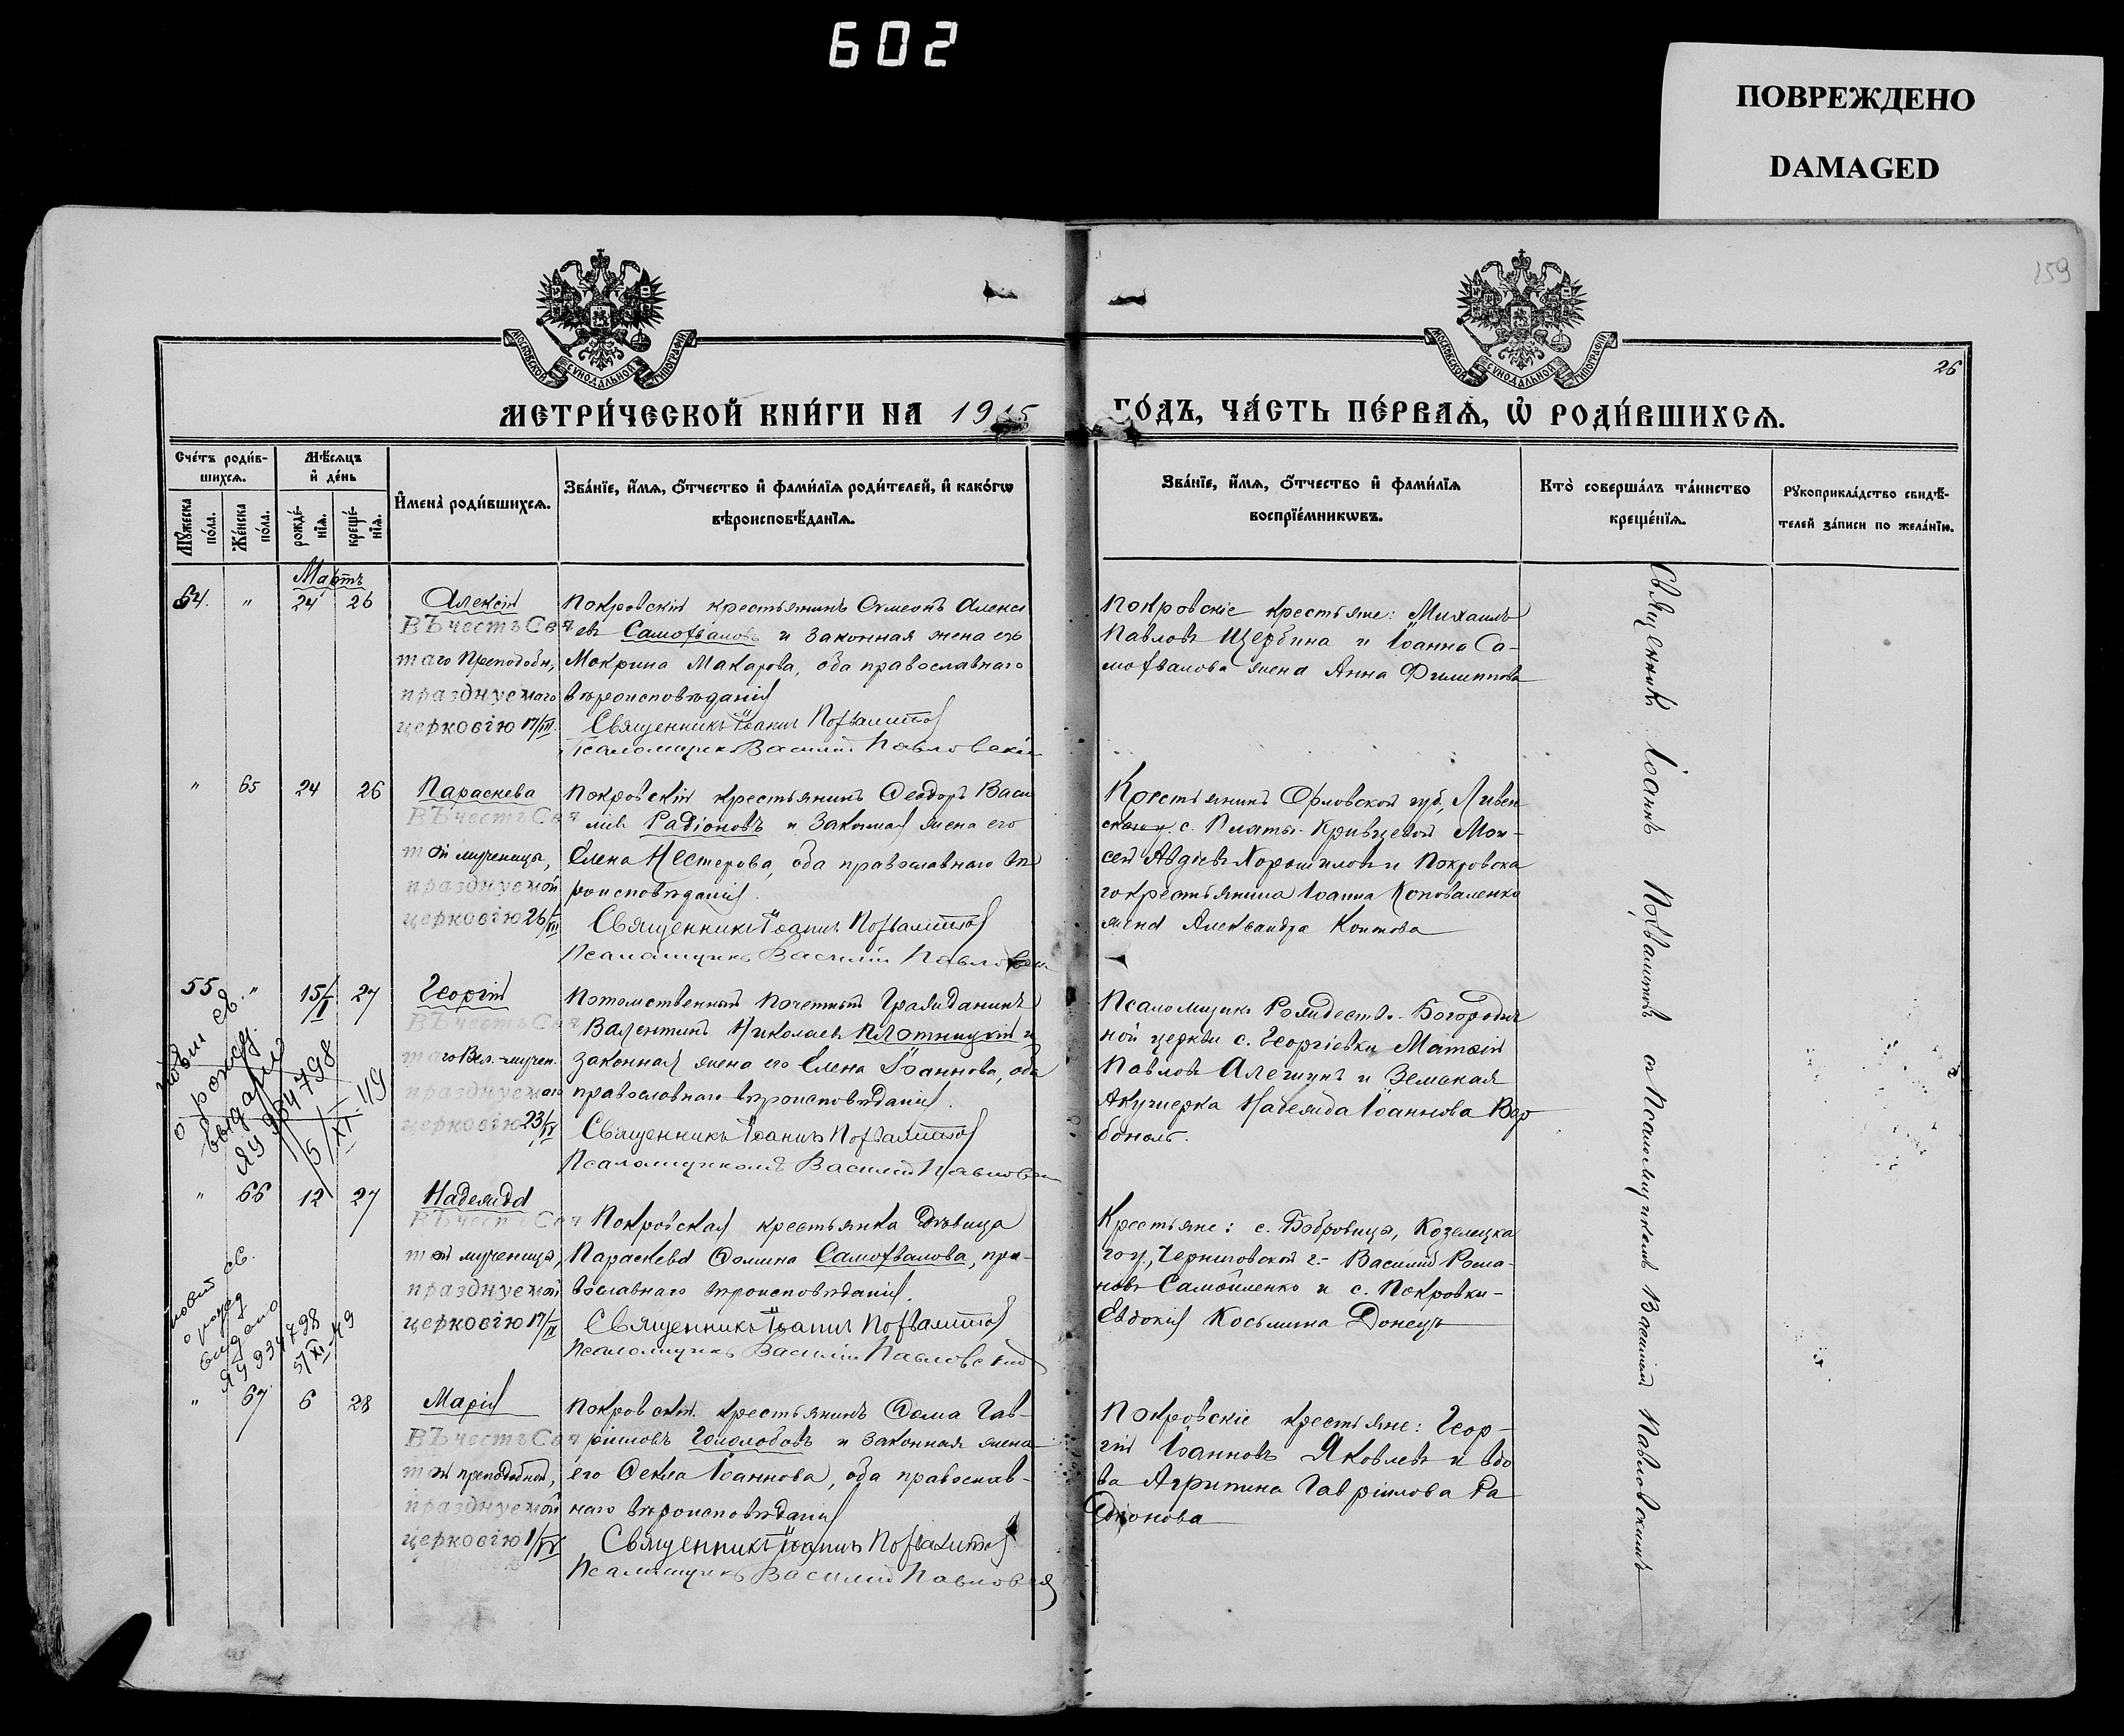 602
ПОВРЕЖДЕНО
DAMAGED
159
МОСКОВСКОЙ СУНОДАЛЬНОЙ ТИПОГРАФІИ
МОСКОВСКОЙ СУНОДАЛЬНОЙ ТИПОГРАФІИ
26
МЕТРИ́ЧЕСКОЙ КНИ́ГИ НА 1915 ГО́ДЪ, ЧА́СТЬ ПЕ́РВАѦ, Ѡ҆ РОДИ́ВШИХСѦ.
Сче́тъ роди́в-
шихсѧ.
Мꙋ́жеска
по́ла.
Же́нска
по́ла.
Мѣ́сѧцъ
и҆ де́нь
рожде́-
нїѧ.
креще́-
нїѧ.
И҆мена̀ роди́вшихсѧ.
Зва́нїе, и҆́мѧ, ѻ҆́тчество и҆ фами́лїѧ роди́телей, и҆ како́гѡ
вѣроисповѣ́данїѧ.
Зва́нїе, и҆́мѧ, ѻ҆́тчество и҆ фами́лїѧ
воспрїе́мникѡвъ.
Кто̀ соверша́лъ та́инство
креще́нїѧ.
Рꙋкоприкла́дство свидѣ́-
телей за́писи по жела́нїю.
Мартъ
64. " 24 26
Алексій
Въ честь Свя
таго Преподобн,
празднуемаго
церковію 17/III.
Покровскій крестьянинъ Сѵмеонъ Алексі
евъ Самохваловъ и законная жена его
Мокрина Макарова, оба православнаго
вѣроисповѣданія
Священникъ Іоаннъ Похвалитовъ
Псаломщикъ Василій Павловскій
Покровскіе крестьяне: Михаилъ
Павловъ Щербина и Іоанна Са-
мохвалова жена Анна Филиппова
" 65 24 26
Параскева
Въ честь Свя
той мученицы,
празднуемой
церковію 26/VII
Покровскій крестьянинъ Ѳеодоръ Васи
ліевъ Радіоновъ и законная жена его
Елена Нестерова, оба православнаго вѣ
роисповѣданія.
Священникъ Іоаннъ Похвалитовъ
Псаломщикъ Василій Павловскій
Крестьянинъ Орловской губ., Ливен
скаго у. с. Кривцевой Мои-
сей Авдіевъ Хорошиловъ и Покровска
го крестьянина Іоанна Коноваленко
жена Александра
55 " 15/I 27
Георгій
Въ честь Свя
таго Вел.-мучен.
празднуемаго
церковію 23/IV
Потомственный Почетный Гражданинъ
Валентинъ Николаевъ Плотницкій и
законная жена его Елена Іоаннова, оба
православнаго вѣроисповѣданія.
Священникъ Іоаннъ Похвалитовъ
Псаломщикъ Василій Павловскій
Псаломщикъ Рождество-Богородич
ной церкви с. Георгіевки Матѳій
Павловъ Алешинъ и Земская
Акушерка Надежда Іоаннова Вер
боноль.
о рожд.
выдано
ЯУ 934798
5/XI 49
" 66 12 27
Надежда
Въ честь Свя
той мученицы,
празднуемой
церковію 17/IX
Покровская крестьянка дѣвица
Параскева Ѳомина Самохвалова, пра-
вославнаго вѣроисповѣданія.
Священникъ Іоаннъ Похвалитовъ
Псаломщикъ Василій Павловскій
Крестьяне: с. Бобровицы, Козелецка
го у., Черниговской г.- Василій Рома-
новъ Самойленко и с. Покровки-
Евдокія Косьмина Донецъ
о рожд
выдано
ЯУ 934798
5/XI 49
" 67 6 28
Марія
Въ честь Свя
той преподобной,
празднуемой
церковію 1/IV
Покровскій крестьянинъ Ѳома Гав-
ріиловъ Гололобовъ и законная жена
его Ѳекла Іоаннова, оба православ-
наго вѣроисповѣданія
Священникъ Іоаннъ Похвалитовъ
Псаломщикъ Василій Павловскій
Покровскіе крестьяне: Геор-
гій Іоанновъ Яковлевъ и вдо
ва Агрипина Гавріилова Ра
діонова
Священникъ Іоаннъ Похвалитовъ съ Псаломщикомъ Василіемъ Павловскимъ